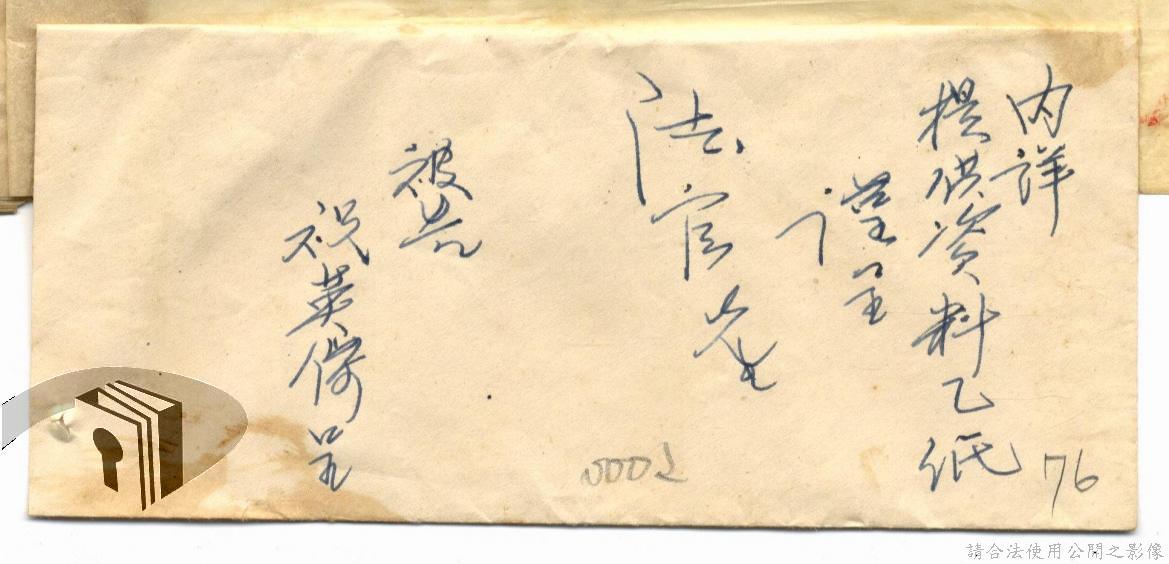 内詳
提供資料乙紙
謹呈
法官先生
被告
祝英傑呈
0002
76
請合法使用公開之影像